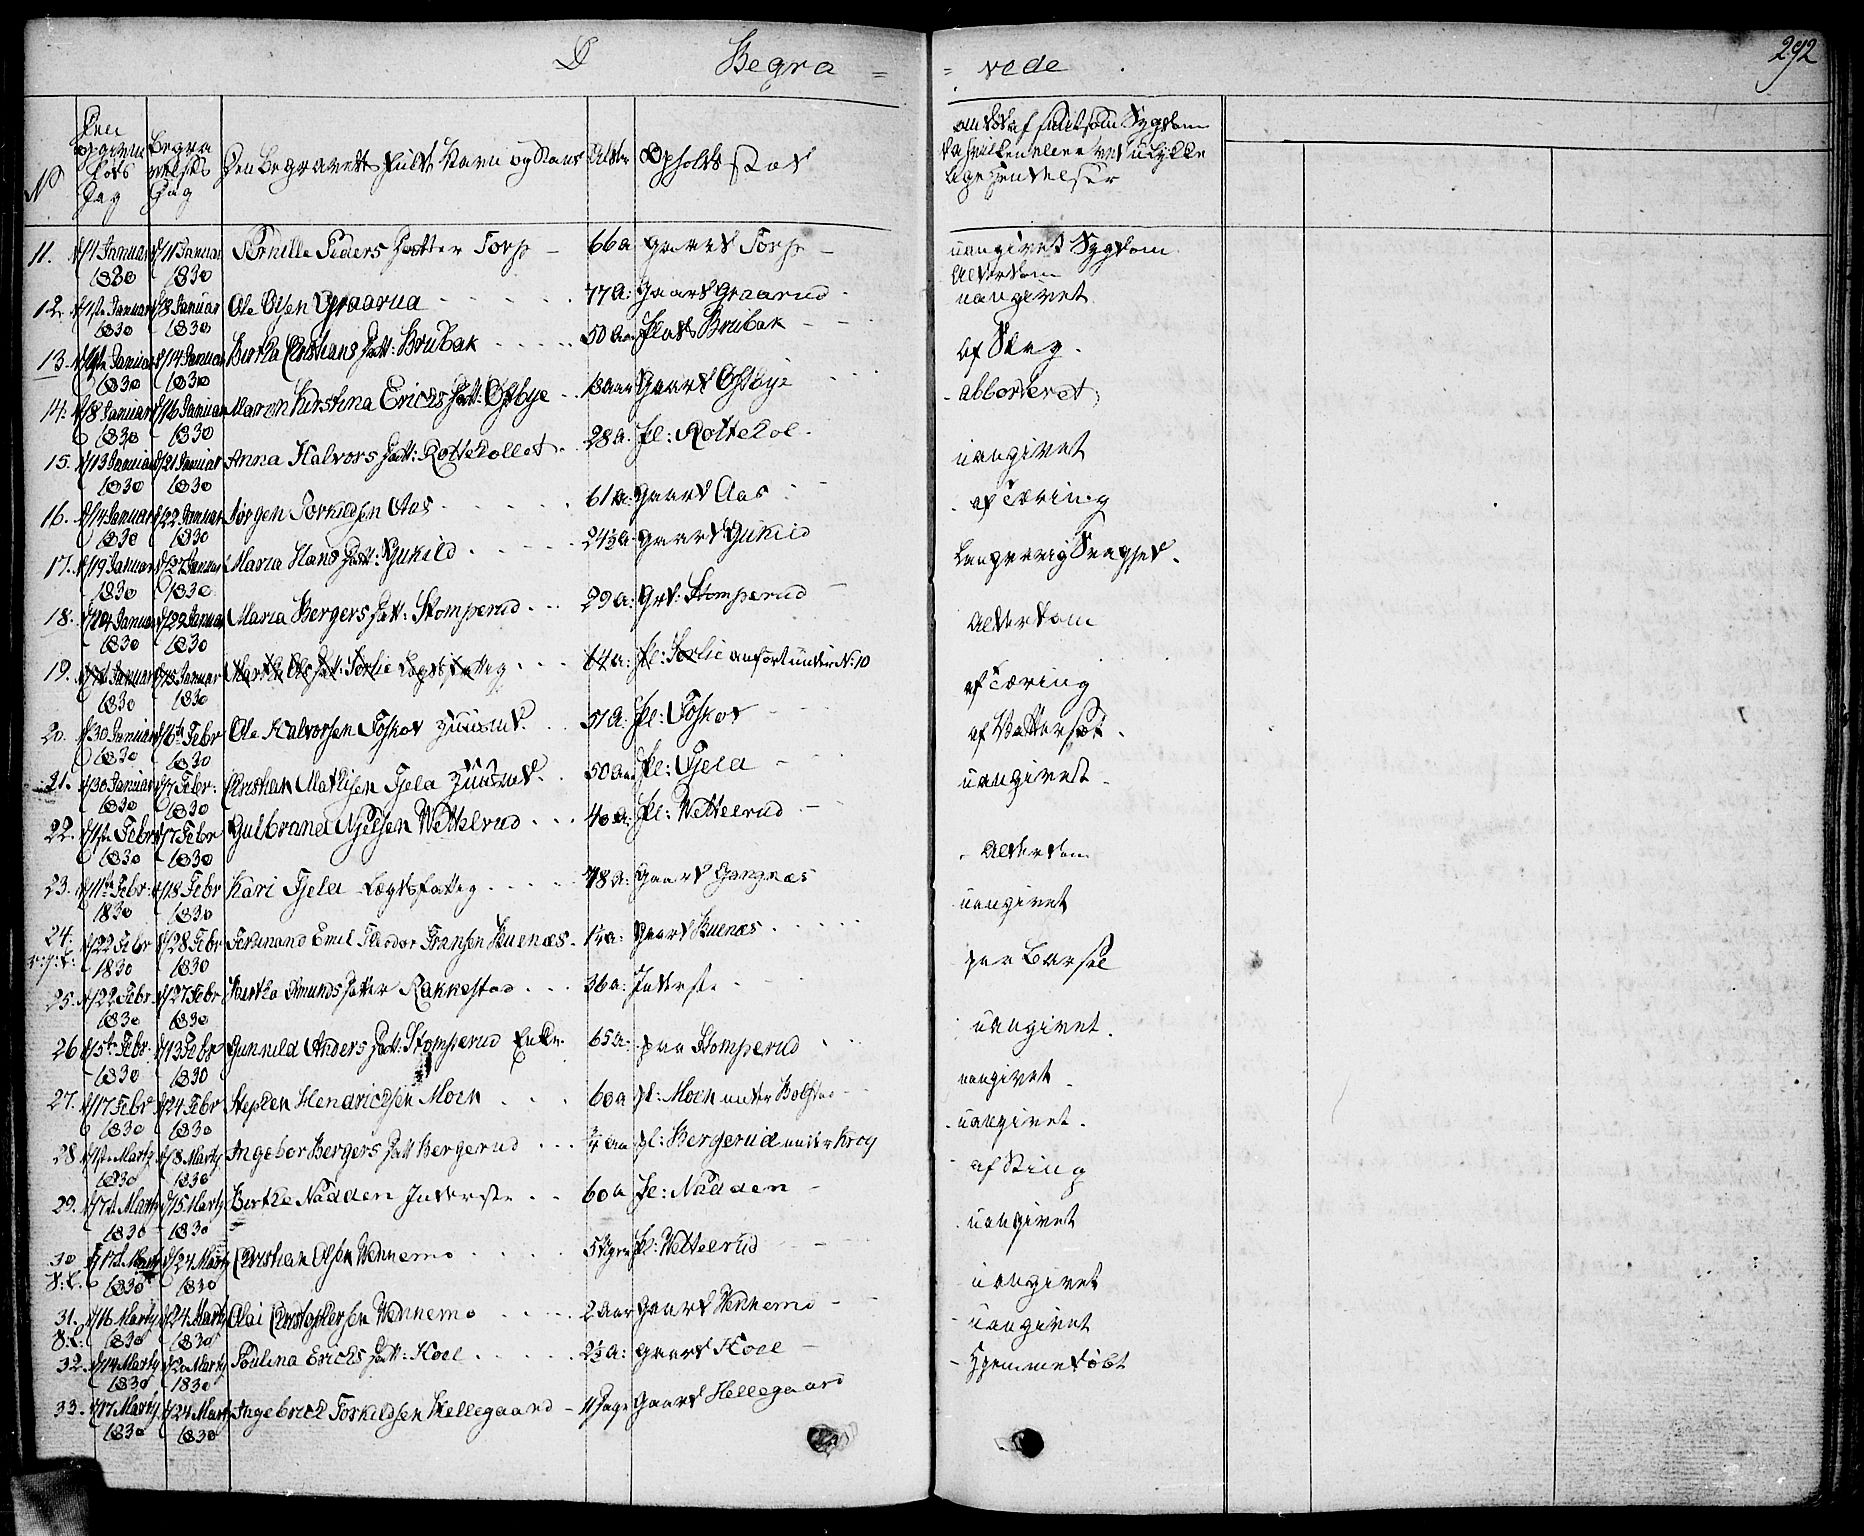 D
Begra = = vede
292
No
Den opgivne Døds Dag
Begravelses Dag
Den Begravedes fulde Navn og Stand
Alder
Opholds sted
om død af smitsom Sygdom
11. d/4 Januar 1830 d/11 Januar 1830 Pernille Peders Datter Torp – 66 a: Gaard Torp – uangivet Sygdom
12. d/1ste Januar 1830 d/8 Januar 1830 Ole Olsen Graarud 77 a: Gaard Graarud Alderdom
uangivet
13. Januar 1830 d/14 Januar 1830 Birthe Christians Datt: Brubak 50 Aar Plads Brubak
af Slag.
14. d/8 Januar 1830 d/16 Januar 1830 Maren Kirstina Erichs Datt: Østbye Gaard Østbye
abborteret
15. d/13 Januar 1830 d/21 Januar 1830 Anna Halvors Datt: Rottekollet 28 a. Pl: Rottekol
uangivet
16. d/14 Januar 1830 d/22 Januar 1830 Jørgen Torkildsen Aas 61 a: Gaard Aas
af Tæring
17. d/19 Januar 1830 d/27 Januar 1830 Maria Hans Datt: Gukild 24½ a: Gaard Gukild
Langvarig Svaghed.
18. Januar 1830 d/22 Januar 1830 Maria Bergers Datt: Stomperud 29 a: Grd: Stomperud
Alderdom
19. Januar 1830 d/15 Januar 1830 Martha Ols Datt: Torlie Lægdsfattig 64 a: Pl: Torlie anført under N: 10
af Tæring
20. d/30 Januar 1830 d/6te Febr 1830 Ole Halvorsen Foskot Huusmd. 51 a: Pl: Foskot
af Vattersot.
21. d/30 Januar 1830 d/7 Febr: 1830 Christian Mathisen Tjela Huusmd. 50 Aar Pl: Tjela
uangivet
22. d/1ste Febr 1830 d/7 Febr 1830 Gulbrand Njelsen Wettelrud 40 a: Pl: Wettelrud
Alderdom
23. d/11te Febr 1830 d/18 Febr 1830 Kari Tjela Lægdsfattig 78 a: Gaard Gangnæs
uangivet
24. d/22 Febr 1830 d/28 Febr 1830 Ferdinand Emil Theodor Fransen Huenæs Gaard Huenæs
paa Barsel
25. d/22 Febr 1830 d/27 Febr 1830 Amunds Datter Rakkestad 36 a: Inderste
uangivet.
26 d/5te Febr. 1830 d/13 Febr 1830 Gunnild Anders Datt: Stomperud Enke 65 a. paa Stomperud
uangivet
27. d/17 Febr 1830 d/24 Febr 1830 Stephen Hendrichsen Moen 60 a Pl: Moen under Bolstad
uangivet.
28 d/1ste Marty 1830 d/8 Marty 1830 Ingebor Bergers Datt Bergerud Pl: Bergerud under Krog
af Sting
29. d/7de Marty 1830 d/15 Marty 1830 Birthe Nadden Inderste 60 a Pl: Nadden
uangivet
30 Marty 1830 d/24 Marty 1830 Christian Olsen Wennemo Pl: Wettelrud
uangivet
31. d/16 Marty 1830 d/24 Marty 1830 Olai Christophersen Wennemo 2 Aar Gaard Wennemo
uangivet
32. d/14 Marty 1830 d/20 Marty 1830 Poulina Erichs Datt: Hoel 2½ a: Gaard Hoel
Hjemmedøbt
33. d/17 Marty 1830 d/24 Marty 1830 Ingebrict Torkildsen Hellegaard – 11 Dage Gaard Hellegaard